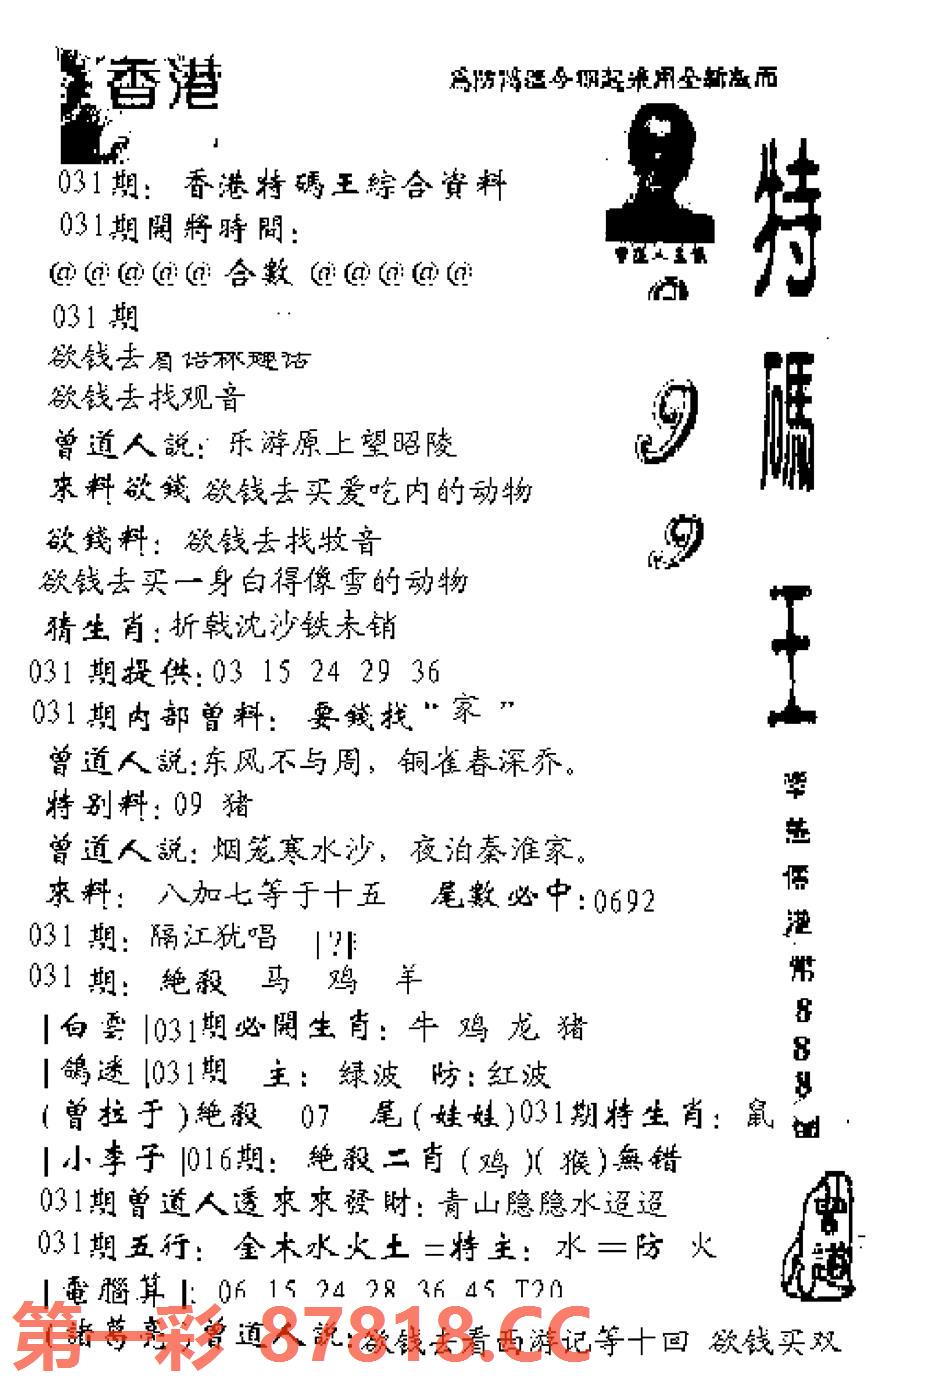 香港
特碼王
031期：香港特碼王綜合資料
031期開將時間：
@@@@@合數@@@@@
031期
欲钱去
欲钱去找观音
曾道人説：乐游原上望昭陵
來料欲錢欲钱去买爱吃内的动物
欲錢料：欲钱去找牧音
欲钱去买一身白得像雪的动物
猜生肖：折戟沈沙铁未销
031期提供：03 15 24 29 36
031期内部曾料：要錢找“家”
曾道人説：东风不与周，铜雀春深乔。
特别料：09 猪
曾道人説：烟笼寒水沙，夜泊秦淮家。
來料：八加七等于十五 尾數必中：0692
031期：隔江犹唱 |?|
031期：絶殺 马 鸡 羊
|白雲|031期必開生肖：牛 鸡 龙 猪
|鴿迷|031期 主：绿波 防：红波
(曾拉于)絶殺 07 尾(娃娃)031期特生肖：鼠
|小李子|016期：絶殺二肖(鸡)(猴)無错
031期曾道人透來來發財：青山隐隐水迢迢
031期五行：金木水火土=特主：水=防 火
|電腦算|：06 15 24 28 36 45 T20
(諸葛亮)曾道人説：欲钱去看西游记等十回 欲钱买双
第一彩 87818.CC
9
9
港幣888
曾道